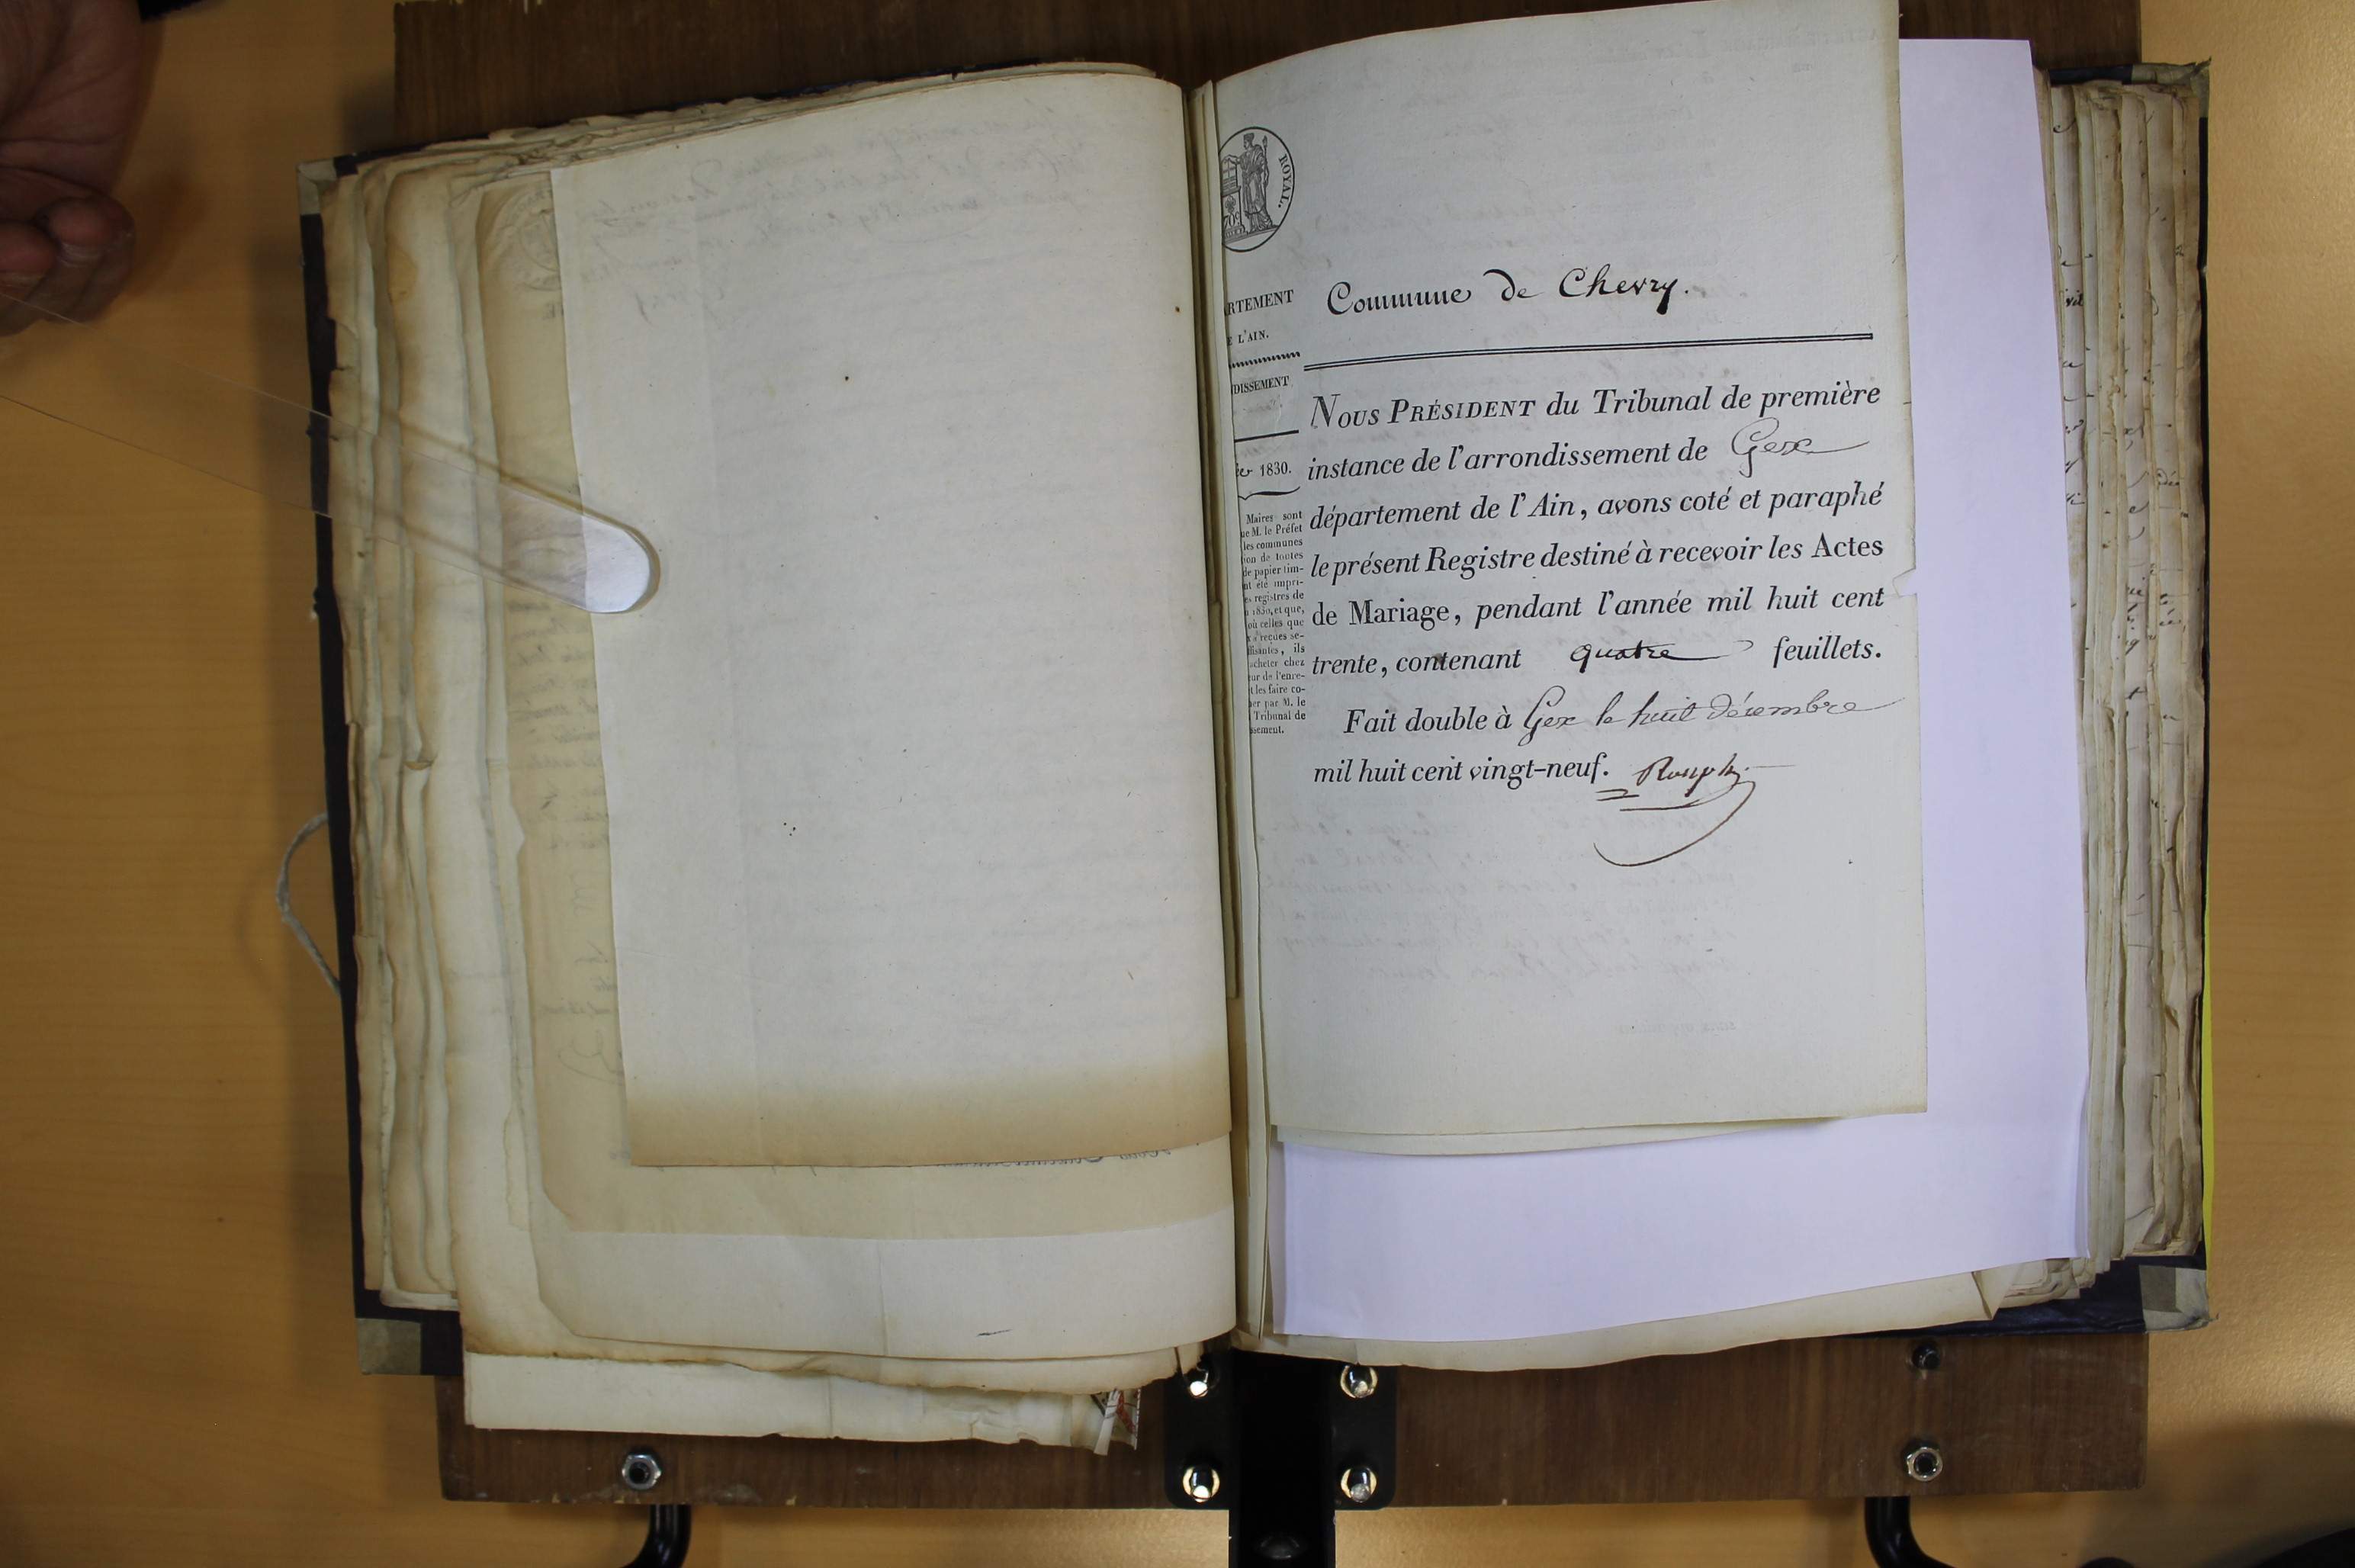 ROYAL.
70c
RTEMENT
E L'AIN.
DISSEMENT
er 1830.
Maires sont
ue M. le Préfet
les communes
ion de toutes
de papier tim-
nt été impri-
es registres de
n 1830, et que,
où celles que
reçues se-
ffisantes, ils
acheter chez
eur de l'enre-
t les faire co-
er par M. le
Tribunal de
ssement.
Commune de Chevry.
NOUS PRÉSIDENT du Tribunal de première
instance de l'arrondissement de Gex
département de l'Ain, avons coté et paraphé
le présent Registre destiné à recevoir les Actes
de Mariage, pendant l'année mil huit cent
trente, contenant quatre feuillets.
Fait double à Gex le huit décembre
mil huit cent vingt-neuf.